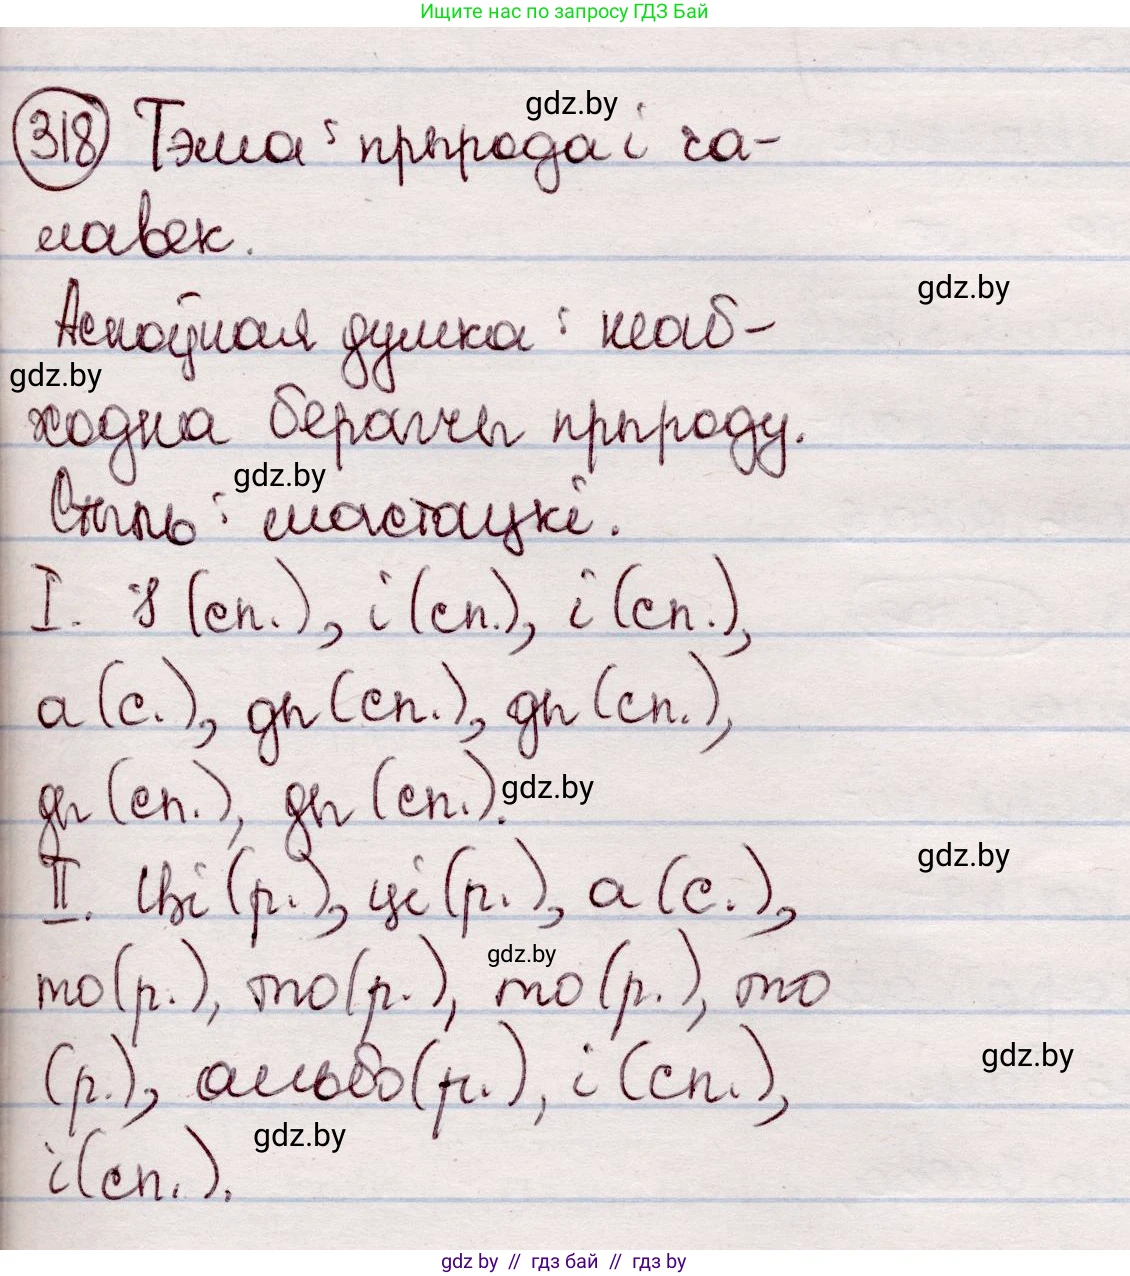 Ищите нас по запросу ГДЗ Бай
gdz.by
318 Тэма: прырода і ча-
лавек.
gdz.by
Асноўная думка: неаб-
gdz.by
ходна берагчы прыроду.
gdz.by
Стыль: мастацкі.
I. І (сп.), і (сп.), і (сп.),
а (с.), ды (сп.), ды (сп.),
ды (сп.), ды (сп.).
gdz.by
gdz.by
II. Ці (р.), ці (р.), а (с.),
gdz.by
то (р.), то (р.), то (р.), то
gdz.by
(р.), альбо (р.), і (сп.),
gdz.by
і (сп.).
gdz by // гдз бай // гдз by